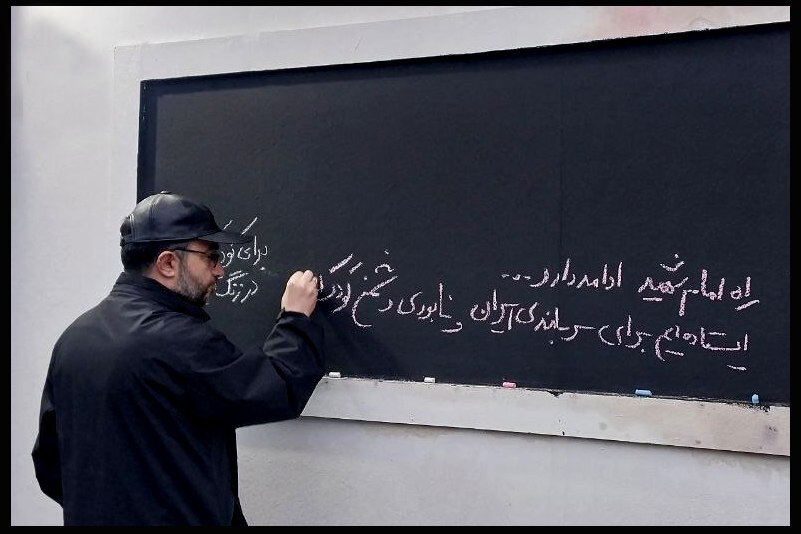 راه امام شهید ادامه دارد...
ایستاده‌ایم برای سربلندی ایران و نابودی دشمن کودک
برای
در زنگ